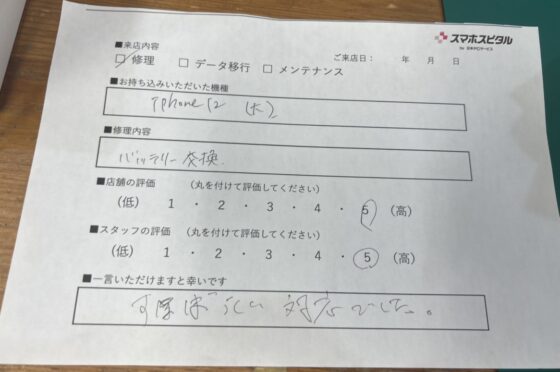 スマホスピタル
by 日本PCサービス
■来店内容
ご来店日： 年 月 日
□ 修理 □ データ移行 □ メンテナンス
■お持ち込みいただいた機種
iPhone12
■修理内容
バッテリー交換
■店舗の評価 （丸を付けて評価してください）
（低） 1 ・ 2 ・ 3 ・ 4 ・ 5 （高）
■スタッフの評価 （丸を付けて評価してください）
（低） 1 ・ 2 ・ 3 ・ 4 ・ 5 （高）
■一言いただけますと幸いです
すばらしい 対応でした。